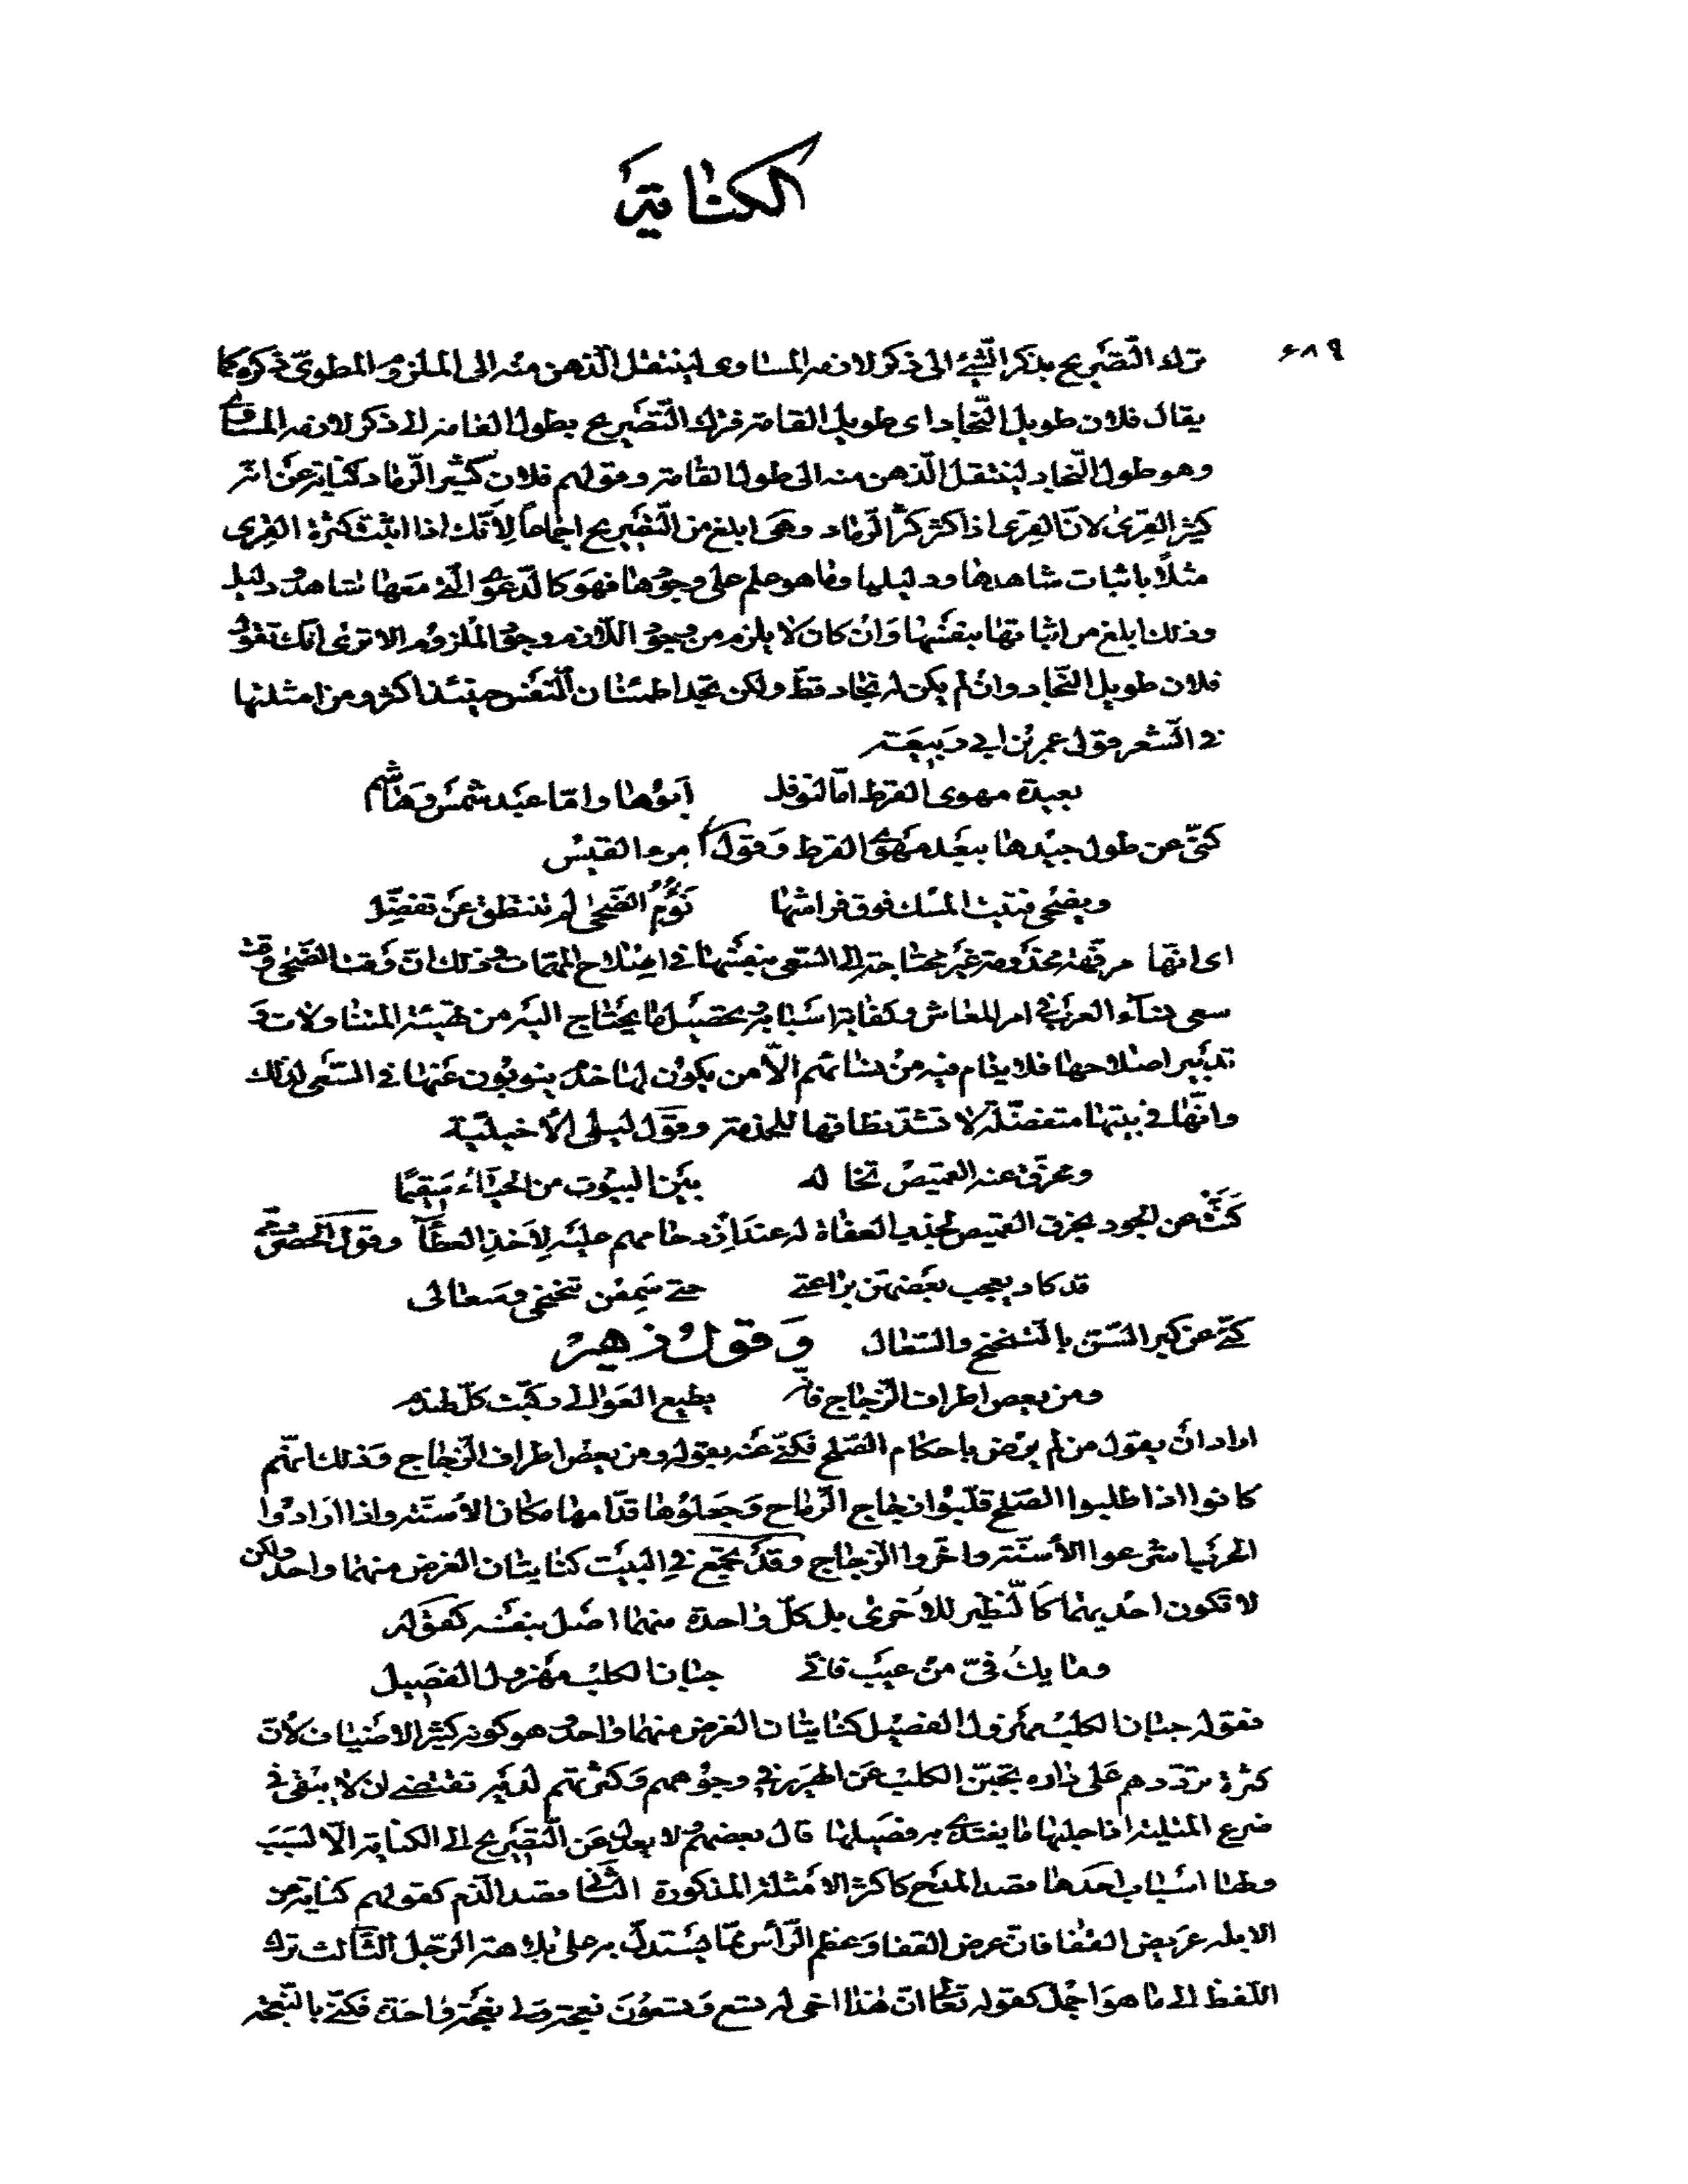 الكناية
٦٨٩
ترك التّصريح بذكر الشّيئ الى ذكر لازمه المساوى لينتقل الذهن منه الى الملزوم المطوىّ ذكره كما
يقال فلان طويل النّجاد اى طويل القامة فترك التّصريح بطول القامة الى ذكر لازمه المساوى
وهو طول النّجاد لينتقل الذهن منه الى طول القامة وقولهم فلان كثير الرّماد كناية عن انّه
كثير القِرىٰ لانّ القِرى اذا كثر كثر الرّماد وهى ابلغ من التّصريح اجماعاً لِاَنّك اذا اثبتّ كثرة القِرى
مثلاً باثبات شاهدها ودليلها وما هو علم على وجودها فهو كالدّعوى الّتى معها شاهد ودليل
وذلك ابلغ من اثباتها بنفسها وَان كان لا يلزم من وجود اللّازم وجود الملزوم الا ترى انّك تقول
فلان طويل النّجاد وان لم يكن له نجاد قطّ ولكن تجد اطمئنان النّفس حينئذ اكثر ومن امثلتها
فى الشّعر قول عمر بن ابى ربيعة
بعيدة مهوى القرط امّا لنوفل ابوها وامّا عبد شمس وهاشم
كنّى عن طول جيدها ببعد مهوى القرط وقول امرء القيس
ويضحى فتيت المسك فوق فراشها نؤوم الضّحىٰ لم تنتطق عن تفضّل
اى انّها مرفّهة مخدومة غير محتاجة الى السّعى بنفسها فى اصلاح المهمّات وذلك انّ وقت الضّحى وقت
سعى نسآء العرب فى امر المعاش وكفاية اسبابه وتحصيل ما يحتاج اليه من تهيئة المتناولات و
تدبير اصلاحها فلا ينام فيه من نسائهم الاّ من يكون لها خدم ينوبون عنها فى السّعى لذلك
وانّها فى بيتها متفضّلة لا تشدّ نطاقها للخدمة وقول ليلى الأخيليّة
ومخرّق عنه القميص تخاله بين البيوت من الحياء سقيما
كنّت عن الجود بخرق القميص لجذب العفاة له عند ازدحامهم عليه لِاَخذ العطآء وقول الحضرمى
قد كاد يعجب بعضهنّ براعتى حتى سمعن تنحنحى وسعالى
كنّى عن كبر السّنّ بالتّنحنح والسّعال وَقول زهير
ومن يعص اطراف الزّجاج فانّه يطيع العوالى ركّبت كلّ لهذم
اراد ان يقول من لم يرض باحكام الصّلح فكنّى عنه بقوله ومن يعص اطراف الزّجاج وذلك انّهم
كانوا اذا طلبوا الصّلح قلّبوا زجاج الرّماح وجعلوها قدّامها مكان الاسنّة واذا ارادوا
الحرب اشرعوا الأسنّة واخّروا الزّجاج وقد يجتمع فى البيت كنايتان الغرض منهما واحد ولكن
لا تكون احديهما كالنّظير للأخرىٰ بل كلّ واحدة منهما اصل بنفسه كقوله
وما يك فىّ من عيب فانّى جبان الكلب مهزول الفصيل
فقوله جبان الكلب مهزول الفصيل كنايتان الغرض منهما واحد هو كونه كثير الاضياف لأنّ
كثرة تردّدهم على داره يجبّن الكلب عن الهرير فى وجوههم وكثرتهم لديه تقتضى ان لا يبقى فى
ضرع المتلية اذا حلبها ما يغتذى به فصيلها قال بعضهم لا يعدل عن التّصريح الى الكناية الّا لسبب
ولها اسباب احدها قصد المدح كاكثر الامثلة المذكورة الثّانى قصد الذّم كقولهم كناية عن
الابله عريض القفا فانّ عرض القفا وعظم الرّأس ممّا يستدلّ به على بلاهة الرّجل الثّالث ترك
اللّفظ الى ما هو اجمل كقوله تعالى انّ هٰذا اخى له تسع وتسعون نعجة ولى نعجة واحدة فكنّى بالنّعجة